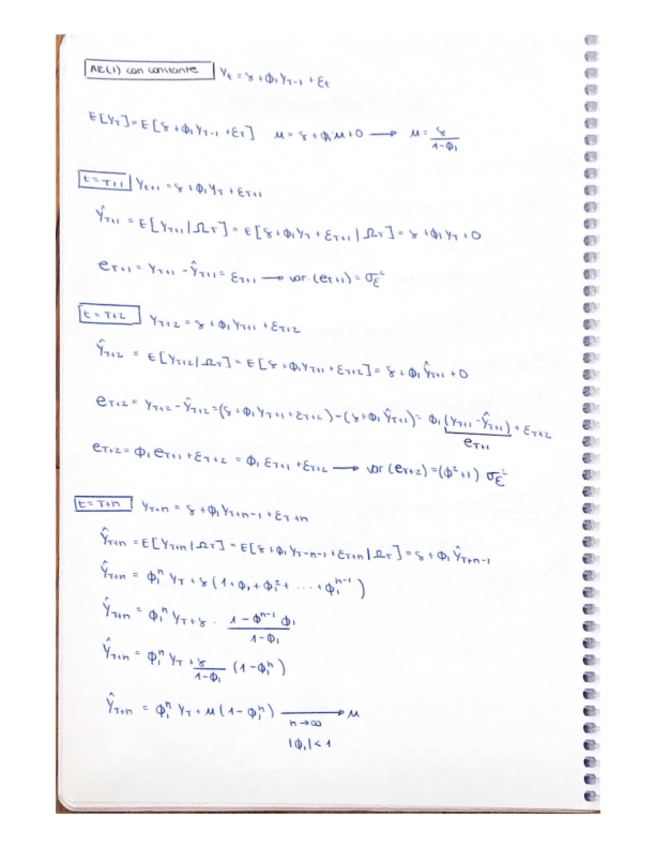 AR(1) con constante Yt = γ + ϕ1 YT-1 + εt
E[YT] = E[γ + ϕ1 YT-1 + εT] μ = γ + ϕ1 μ + 0 → μ = γ / 1-ϕ1
t = T+1 YT+1 = γ + ϕ1 YT + εT+1
ŶT+1 = E[YT+1 | ΩT] = E[γ + ϕ1 YT + εT+1 | ΩT] = γ + ϕ1 YT + 0
eT+1 = YT+1 - ŶT+1 = εT+1 → var (eT+1) = σε²
t = T+2 YT+2 = γ + ϕ1 YT+1 + εT+2
ŶT+2 = E[YT+2 | ΩT] = E[γ + ϕ1 YT+1 + εT+2] = γ + ϕ1 ŶT+1 + 0
eT+2 = YT+2 - ŶT+2 = (γ + ϕ1 YT+1 + εT+2) - (γ + ϕ1 ŶT+1) = ϕ1 (YT+1 - ŶT+1) + εT+2
eT+1
eT+2 = ϕ1 eT+1 + εT+2 = ϕ1 εT+1 + εT+2 → var (eT+2) = (ϕ² + 1) σε²
t = T+n YT+n = γ + ϕ1 YT+n-1 + εT+n
ŶT+n = E[YT+n | ΩT] = E[γ + ϕ1 YT-n-1 + εT+n | ΩT] = γ + ϕ1 ŶT+n-1
ŶT+n = ϕ1ⁿ YT + γ (1 + ϕ1 + ϕ1² + ... + ϕ1ⁿ⁻¹)
ŶT+n = ϕ1ⁿ YT + γ · 1 - ϕⁿ⁻¹ ϕ1 / 1-ϕ1
ŶT+n = ϕ1ⁿ YT + γ / 1-ϕ1 (1 - ϕ1ⁿ)
ŶT+n = ϕ1ⁿ YT + μ (1 - ϕ1ⁿ) → μ
n→∞
|ϕ1| < 1